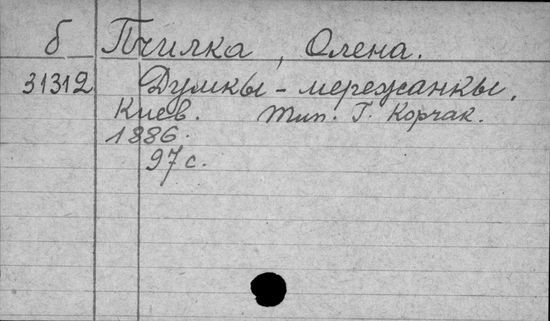 б Пчилка, Олена.
31312 Думкы-мережанкы.
Киев. Тип. Г. Корчак.
1886.
97 с.